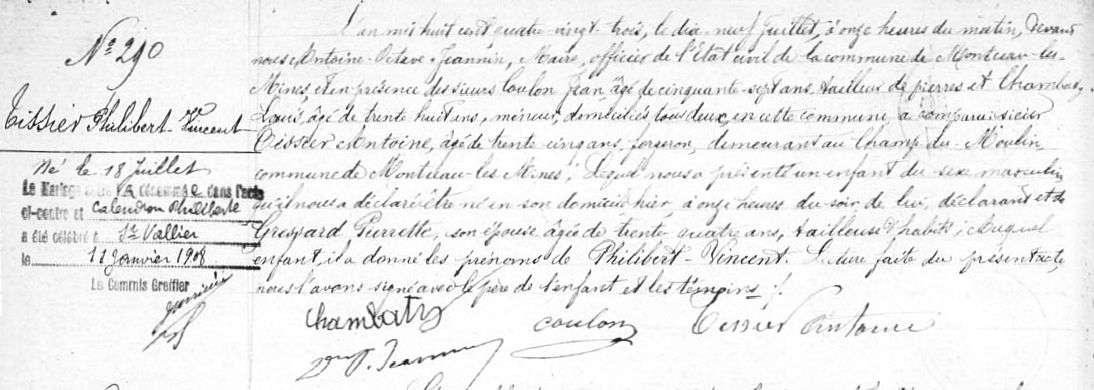 N° 290
Tissier Philibert-Vincent
Né le 18 Juillet
Le Mariage entre la dénommé dans l'acte
ci-contre et Calendron Philiberte
a été célébré à St Vallier
le 11 Janvier 1908
Le Commis Greffier
L'an mil huit cent quatre vingt trois, le dix neuf Juillet, à onze heures du matin, devant
nous Antoine Octave Jeannin, Maire, officier de l'Etat civil de la commune de Montceau-les-
Mines et en présence des sieurs Coulon Jean, âgé de cinquante-sept ans, tailleur de pierres et Chambatz
Louis, âgé de trente huit ans, mineur, domiciliés tous deux en cette commune, a comparu sieur
Tissier Antoine, âgé de trente cinq ans, forgeron, demeurant au Champ du Moulin
commune de Montceau-les-Mines; Lequel nous a présenté un enfant du sexe masculin
qu'il nous a déclaré être né en son domicile hier, à onze heures du soir de lui, déclarant et de
Pierrette, son épouse âgée de trente quatre ans, tailleuse d'habits; Auquel
enfant, il a donné les prénoms de Philibert-Vincent. Lecture faite du présent acte,
nous l'avons signé avec le père de l'enfant et les témoins ./.
Chambatz
Coulon
Tissier Antoine
Jeannin